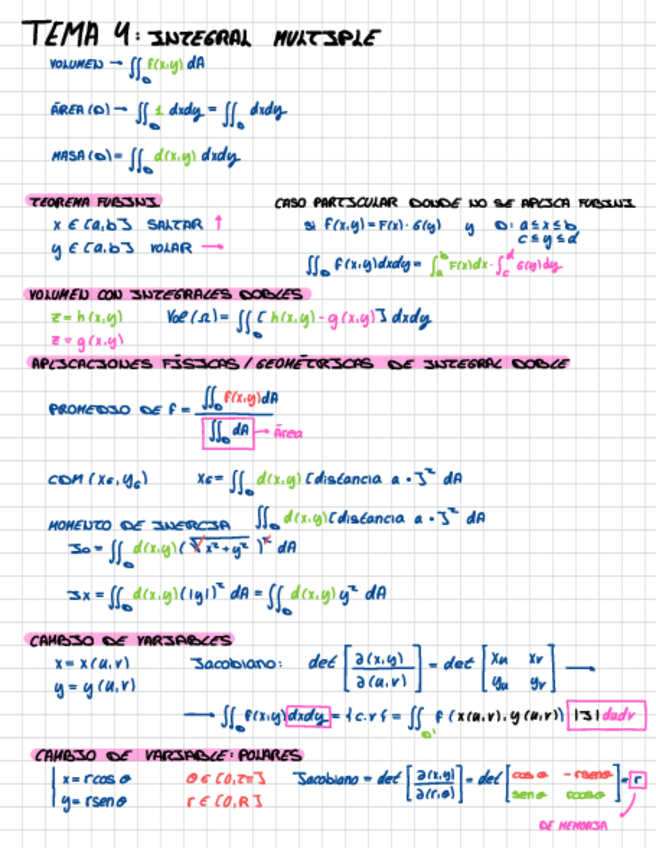 TEMA 4: INTEGRAL MULTIPLE
VOLUMEN → ∬_D f(x,y) dA
ÁREA (D) → ∬_D 1 dxdy = ∬_D dxdy
MASA (D) = ∬_D d(x,y) dxdy
TEOREMA FUBINI
x ∈ [a,b] SALTAR ↑
y ∈ [a,b] VOLAR →
CASO PARTICULAR DONDE NO SE APLICA FUBINI
si f(x,y) = F(x) · G(y) y D: a ≤ x ≤ b
c ≤ y ≤ d
∬_D f(x,y)dxdy = ∫_a^b F(x)dx · ∫_c^d G(y)dy
VOLUMEN CON INTEGRALES DOBLES
z = h(x,y) Vol (Ω) = ∬ [h(x,y) - g(x,y)] dxdy
z = g(x,y)
APLICACIONES FÍSICAS / GEOMÉTRICAS DE INTEGRAL DOBLE
PROMEDIO DE f = ∬_D f(x,y)dA / ∬_D dA → área
CDM (x_G, y_G) x_G = ∬_D d(x,y) [distancia a •]² dA
MOMENTO DE INERCIA ∬_D d(x,y) [distancia a •]² dA
I_0 = ∬_D d(x,y) (√x² + y²)² dA
I_x = ∬_D d(x,y) (|y|)² dA = ∬_D d(x,y) y² dA
CAMBIO DE VARIABLES
x = x(u,v) Jacobiano: det [∂(x,y) / ∂(u,v)] = det [x_u x_v
y = y(u,v) y_u y_v] →
→ ∬_D f(x,y) dxdy = {c.v} = ∬_D' f (x(u,v), y(u,v)) |J| dudv
CAMBIO DE VARIABLE: POLARES
x = rcos θ θ ∈ [0,2π] Jacobiano = det [∂(x,y) / ∂(r,θ)] = det [cos θ -rsenθ
y = rsen θ r ∈ [0,R] sen θ rcosθ] = r
DE MEMORIA